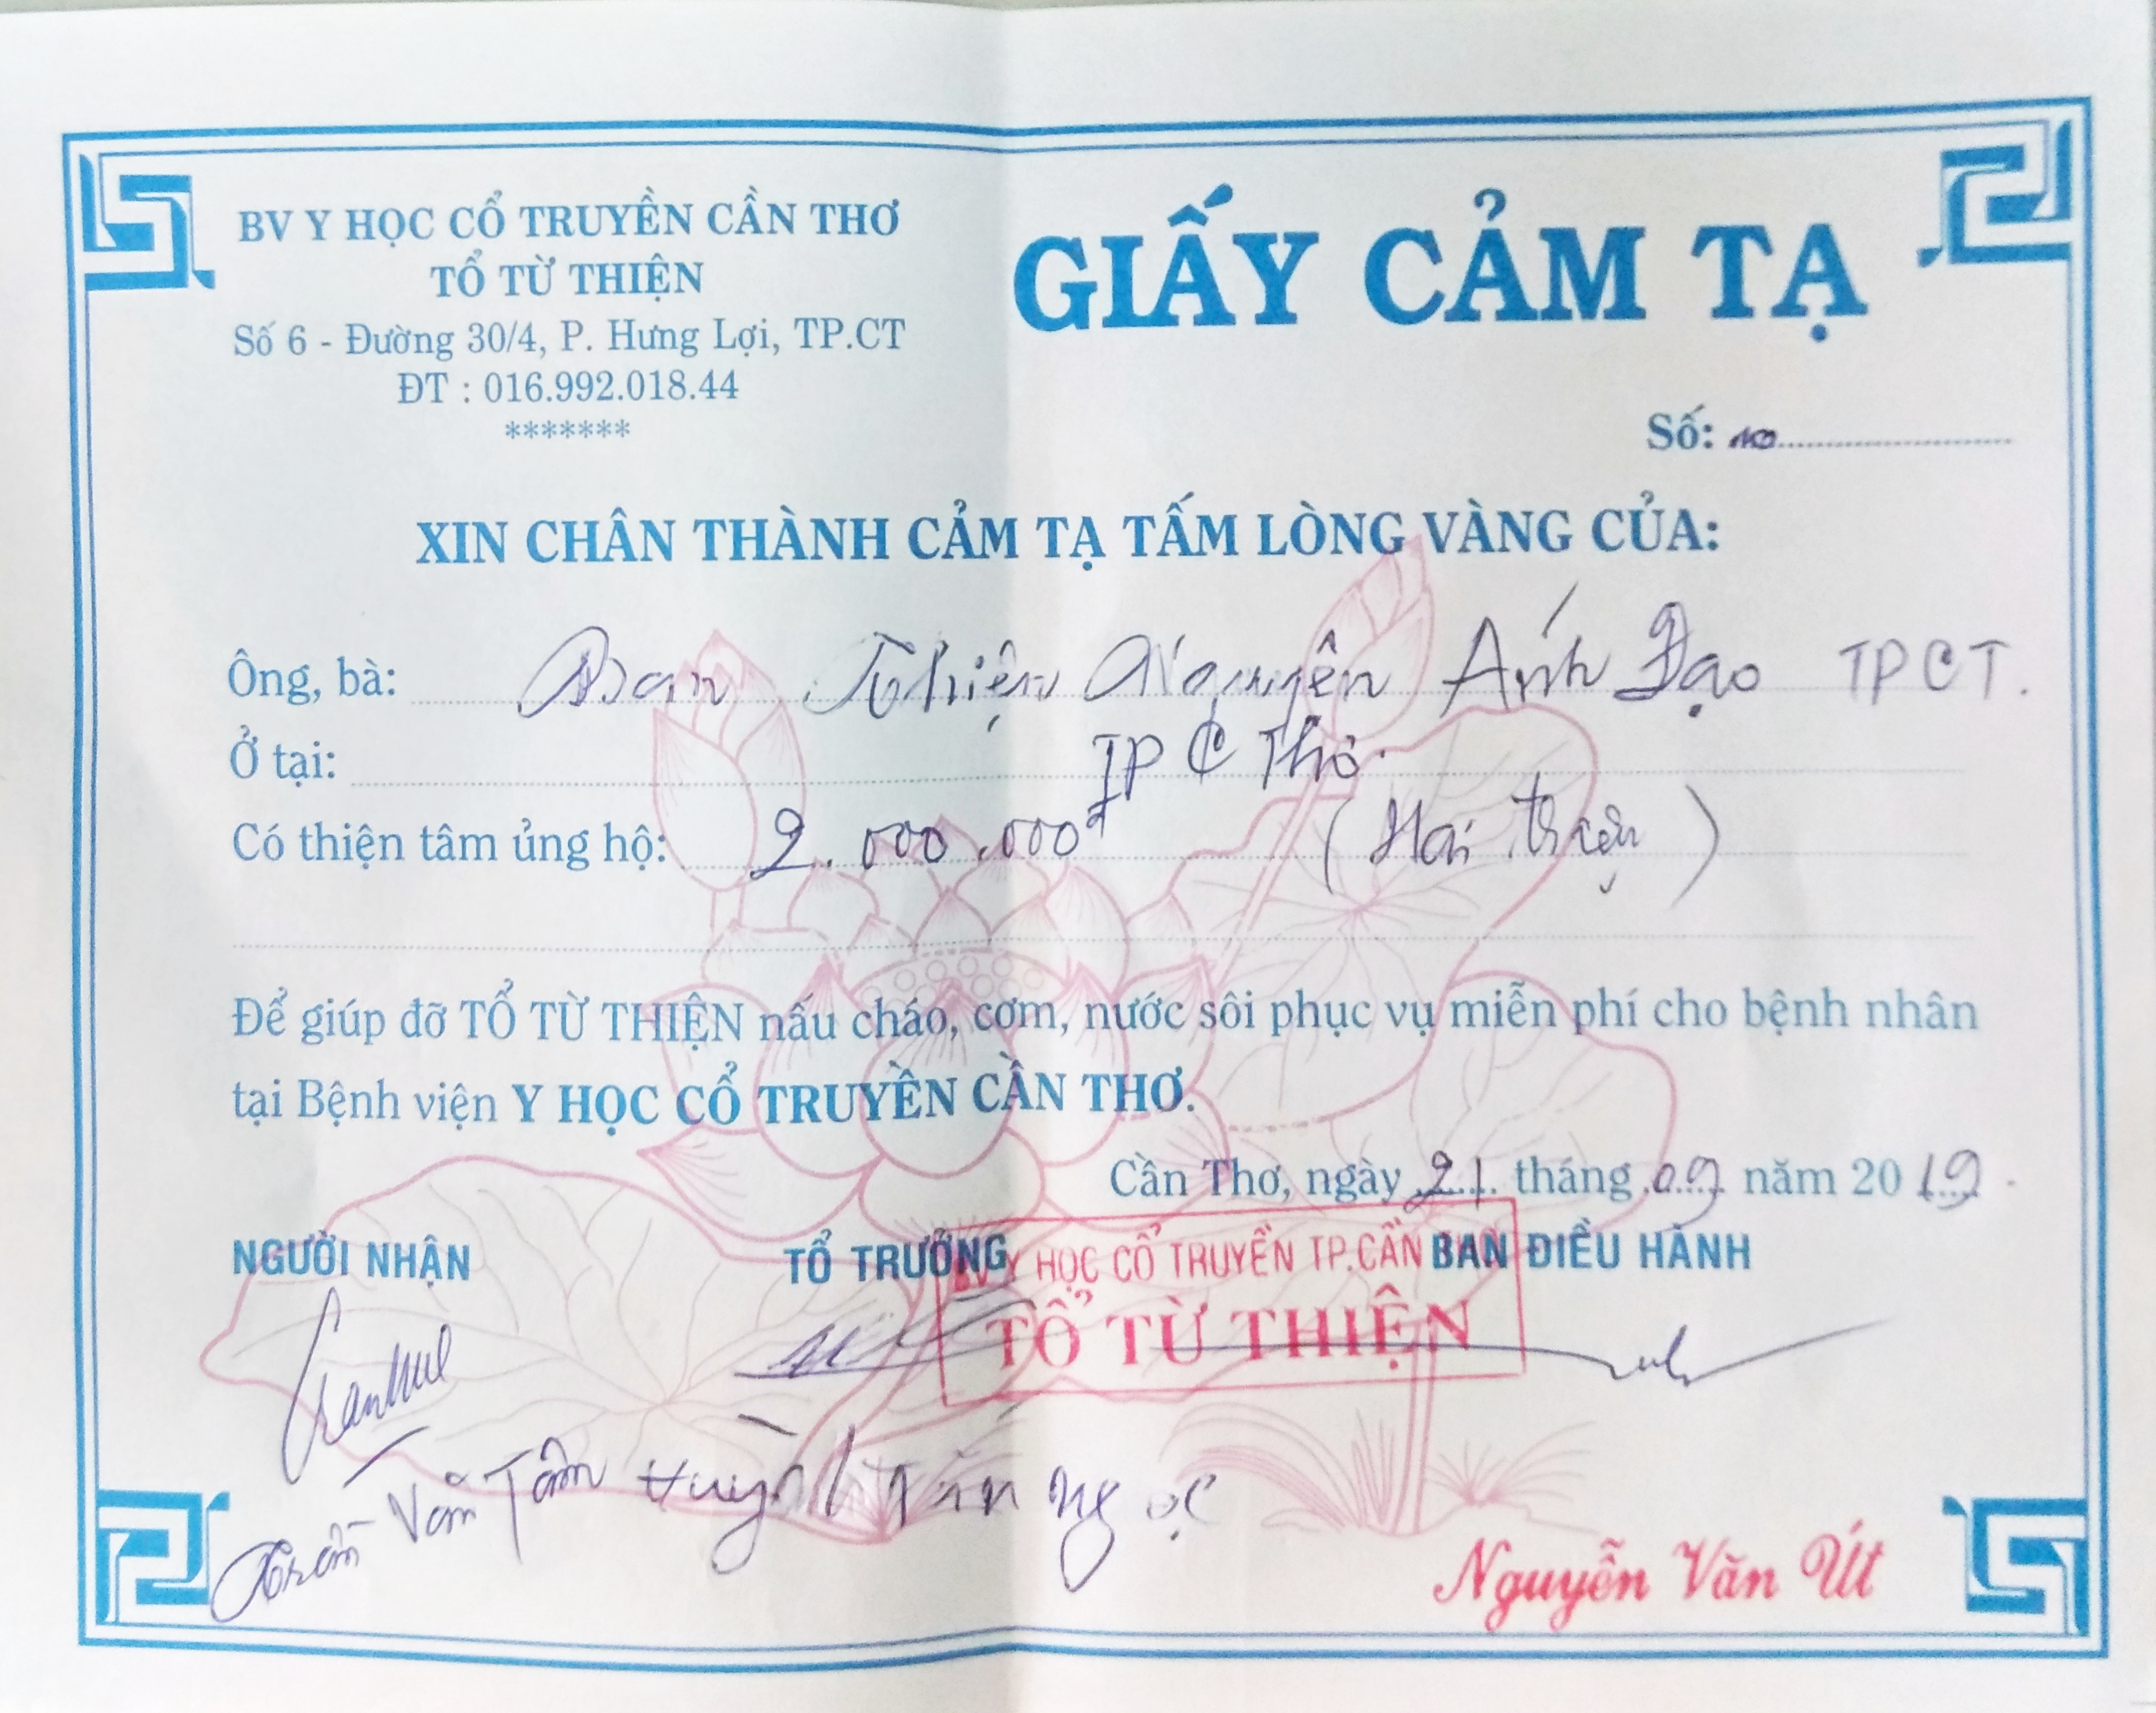 BV Y HỌC CỔ TRUYỀN CẦN THƠ
TỔ TỪ THIỆN
Số 6 - Đường 30/4, P. Hưng Lợi, TP.CT
ĐT : 016.992.018.44
*******
GIẤY CẢM TẠ
Số:
XIN CHÂN THÀNH CẢM TẠ TẤM LÒNG VÀNG CỦA:
Ông, bà: Ban Thiện Nguyện Ánh Đạo TPCT.
Ở tại: TP C Thơ.
Có thiện tâm ủng hộ: 2.000.000đ (Hai triệu)
Để giúp đỡ TỔ TỪ THIỆN nấu cháo, cơm, nước sôi phục vụ miễn phí cho bệnh nhân
tại Bệnh viện Y HỌC CỔ TRUYỀN CẦN THƠ.
Cần Thơ, ngày 21 tháng 09 năm 2019
NGƯỜI NHẬN TỔ TRƯỞNG BAN ĐIỀU HÀNH
BV Y HỌC CỔ TRUYỀN TP.CẦN
TỔ TỪ THIỆN
Trần Văn Tâm Huỳnh Văn Ngọc
Nguyễn Văn Út